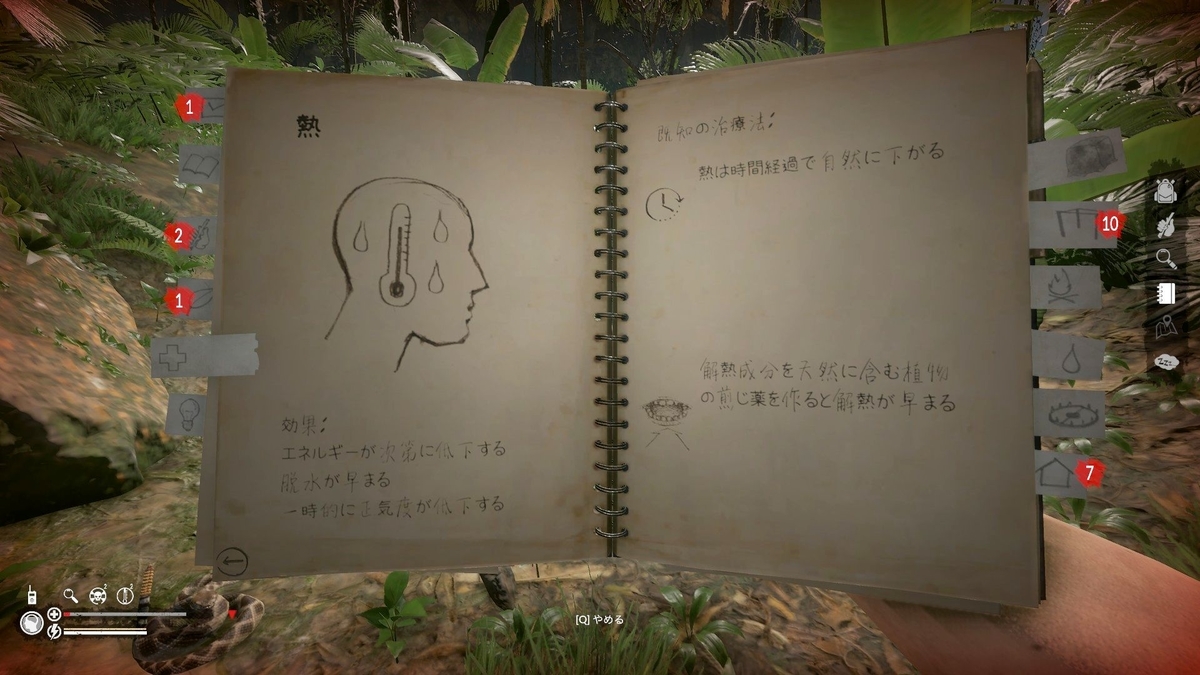 熱
効果:
エネルギーが次第に低下する
脱水が早まる
一時的に正気度が低下する
既知の治療法:
熱は時間経過で自然に下がる
解熱成分を天然に含む植物
の煎じ薬を作ると解熱が早まる
1
2
1
10
7
2
2
zzz
[Q] やめる